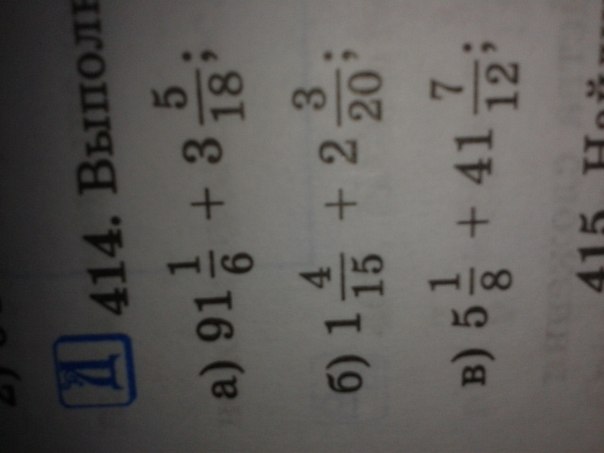 Д 414. Выполн
а) 91 1/6 + 3 5/18;
б) 1 4/15 + 2 3/20;
в) 5 1/8 + 41 7/12;
415. Най